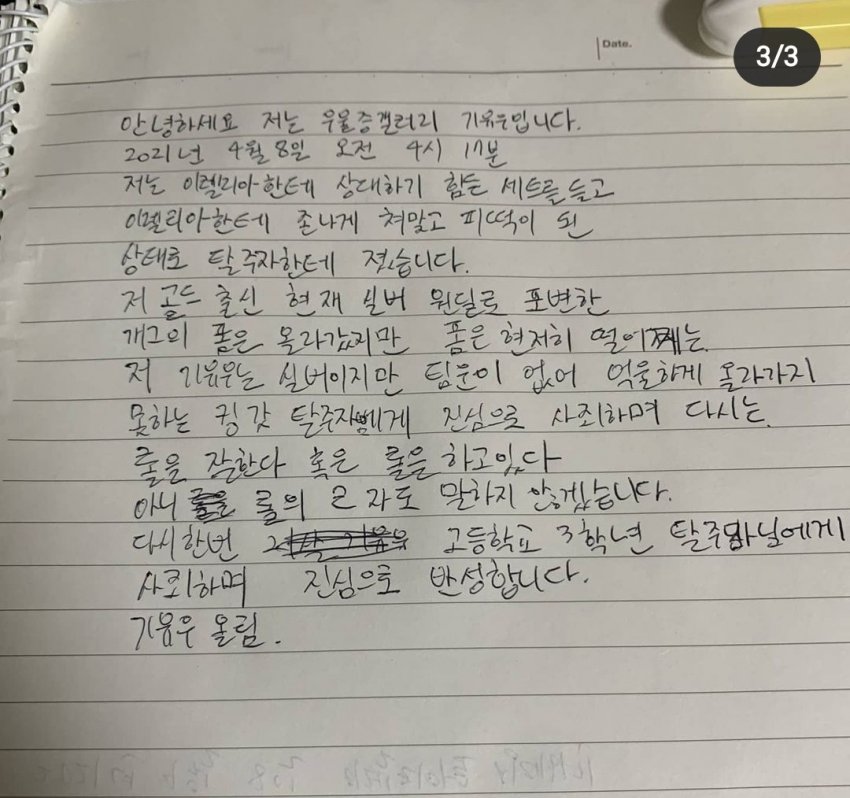 Date.
3/3
안녕하세요 저는 우울증갤러리 기유우입니다.
2021년 4월 8일 오전 4시 17분
저는 이렐리아한테 상대하기 힘든 세트를 들고
이렐리아한테 존나게 쳐맞고 피떡이 된
상태로 탈주자한테 졌습니다.
저 골드 출신 현재 실버 원딜로 포변한
개그의 폼은 올라갔지만 폼은 현저히 떨어지는
저 기유우는 실버이지만 팀운이 없어 억울하게 올라가지
못하는 킹갓 탈주자에게 진심으로 사죄하며 다시는
롤을 잘한다 혹은 롤을 하고있다
아니 롤의 ㄹ자도 말하지 않겠습니다.
다시한번 고등학교 3학년 탈주자님에게
사죄하며 진심으로 반성합니다.
기유우 올림.